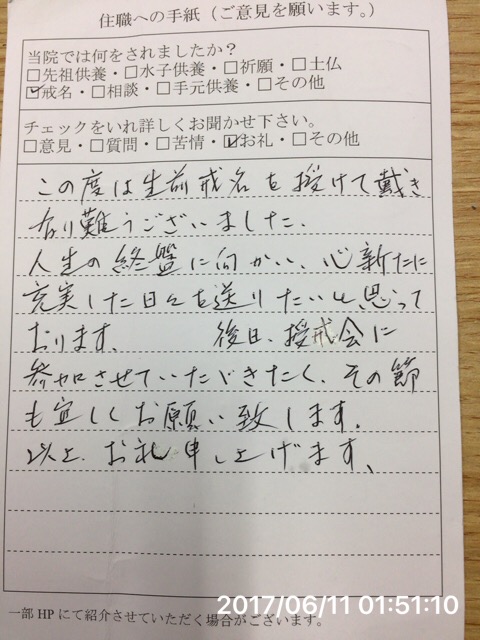 住職への手紙（ご意見を願います。）
当院では何をされましたか？
□先祖供養・□水子供養・□祈願・□土仏
☑戒名・□相談・□手元供養・□その他
チェックをいれ詳しくお聞かせ下さい。
□意見・□質問・□苦情・☑お礼・□その他
この度は生前戒名を授けて戴き
有り難うございました.
人生の終盤に向かい、心新たに
充実した日々を送りたいと思って
おります、 後日、授戒会に
参加させていただきたく、その節
も宜しくお願い致します。
以上、お礼申し上げます、
2017/06/11 01:51:10
一部 HP にて紹介させていただく場合がございます。